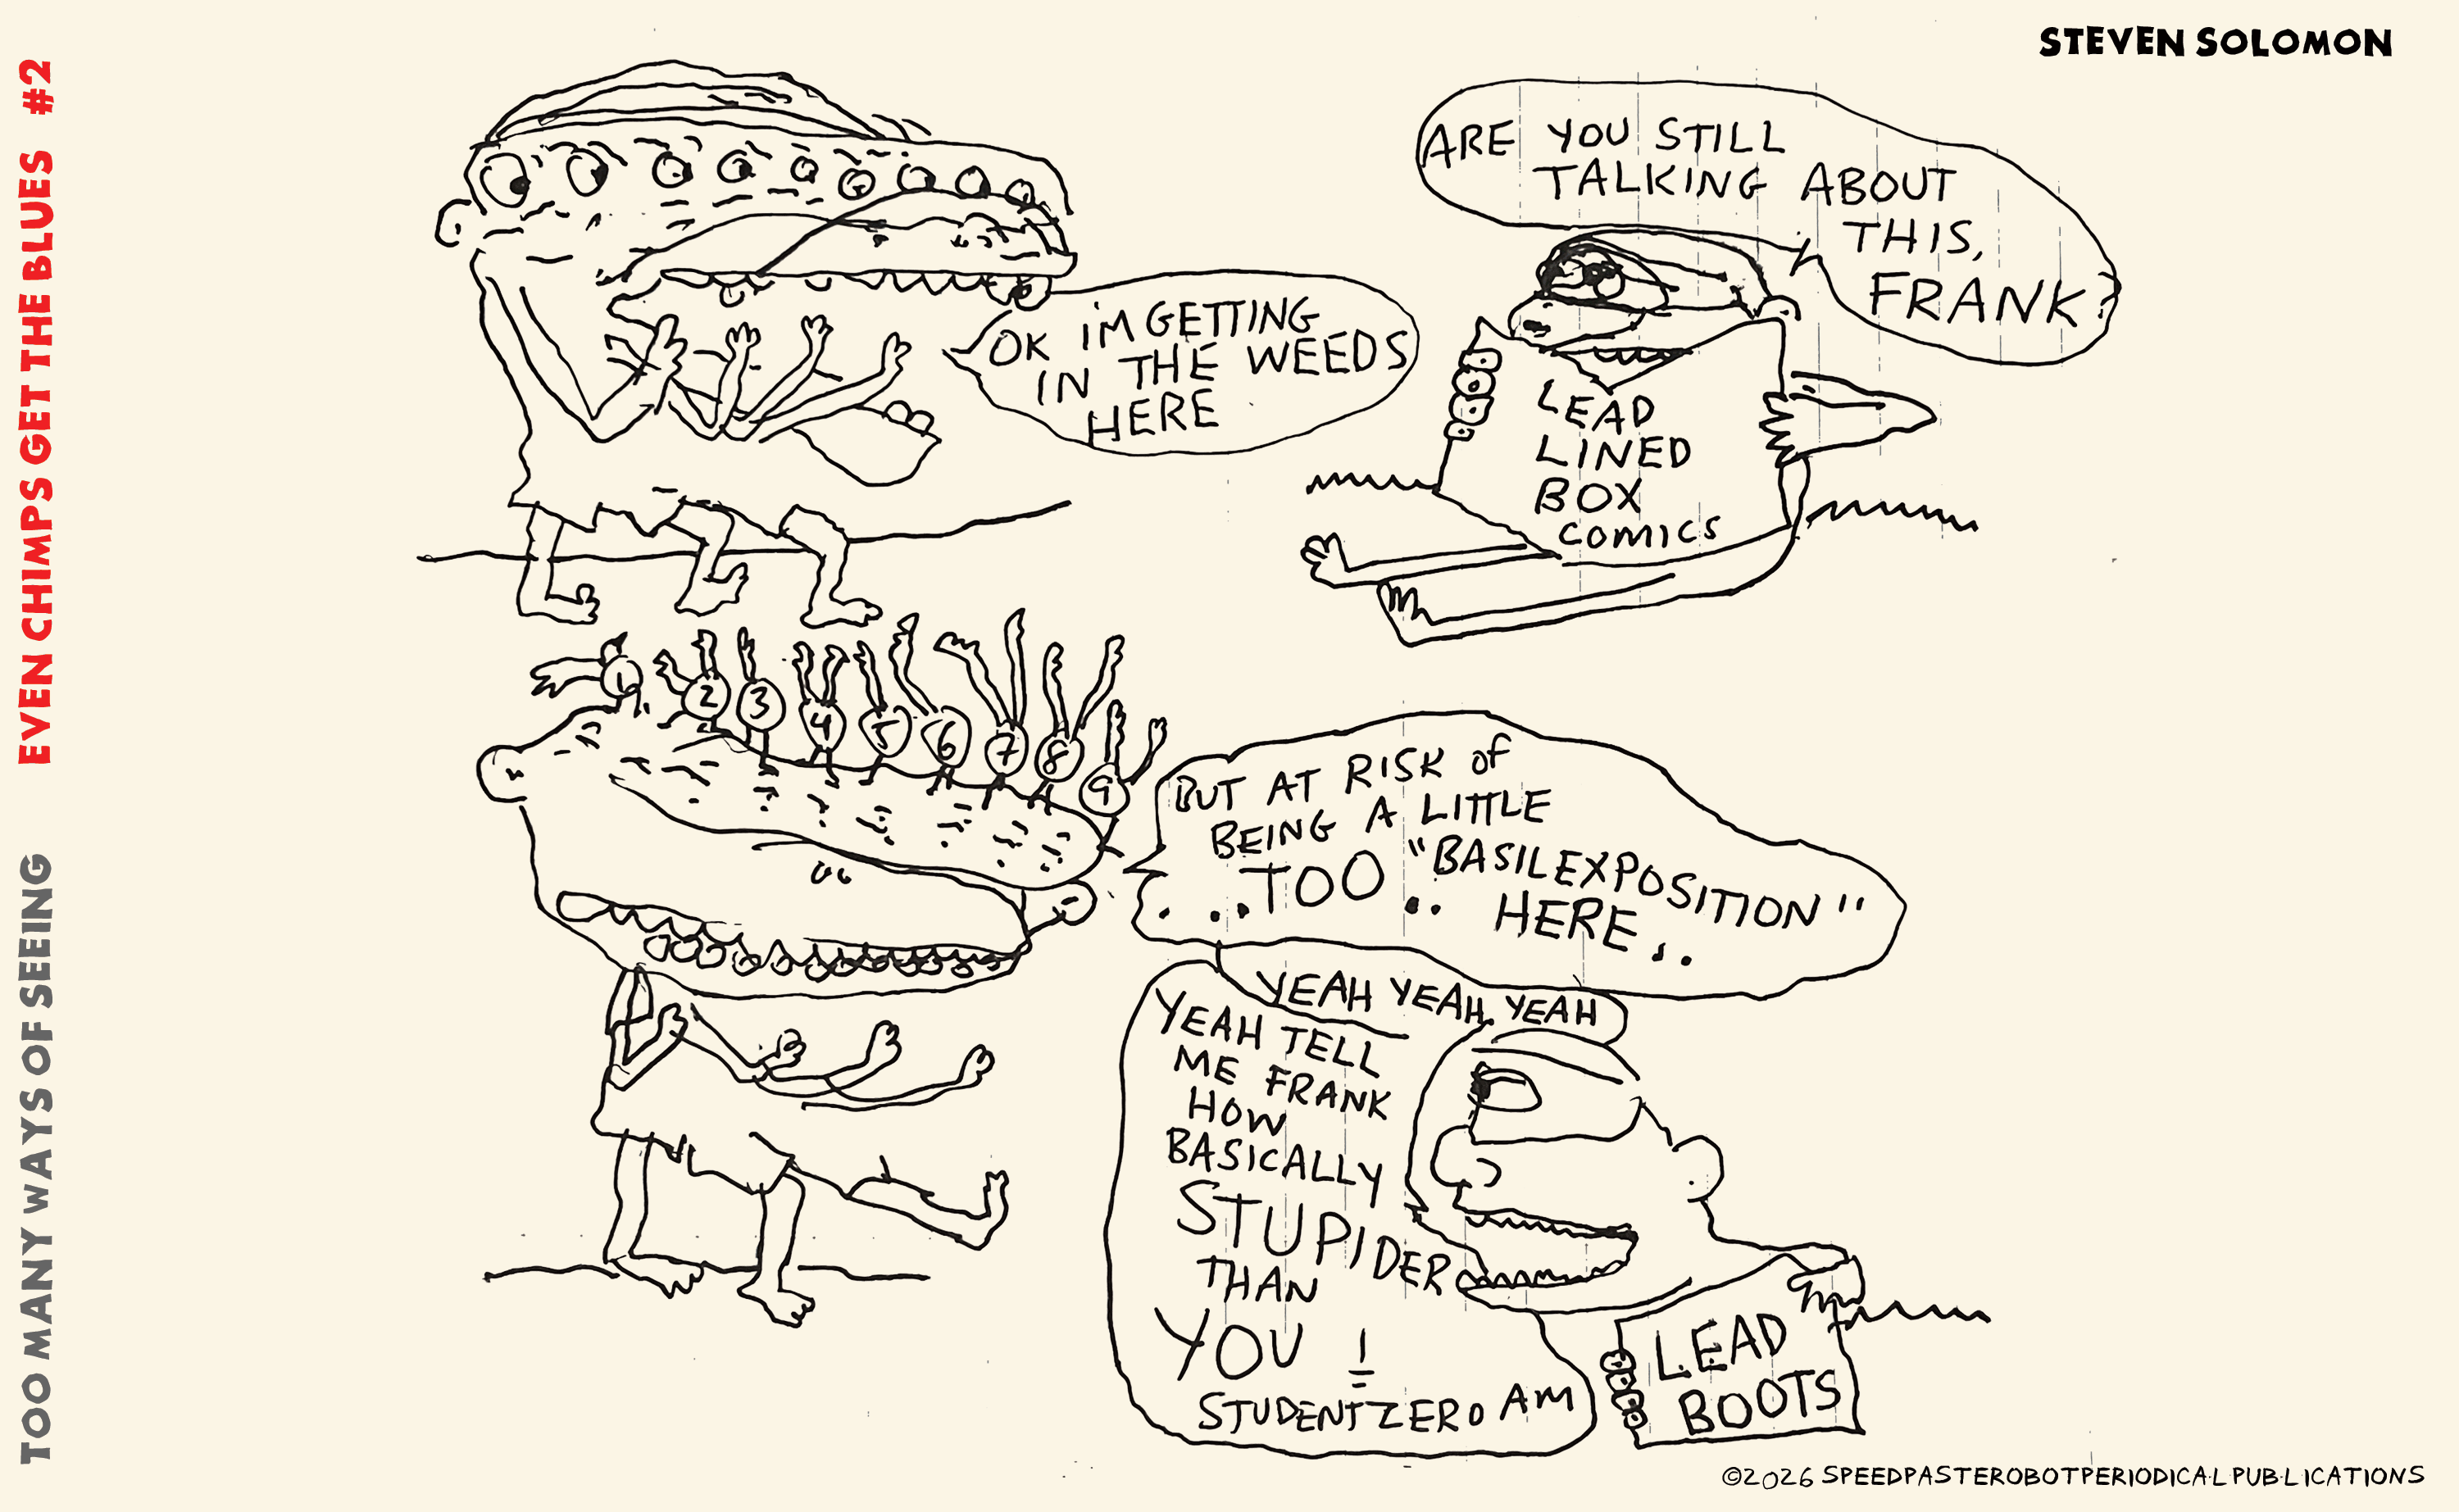 STEVEN SOLOMON
EVEN CHIMPS GET THE BLUES #2
TOO MANY WAYS OF SEEING
OK iM GETTING
IN THE WEEDS
HERE
ARE YOU STILL
TALKING ABOUT
THIS,
FRANK?
LEAD
LINED
BOX
COMICS
1 2 3 4 5 6 7 8 9
BUT AT RISK OF
BEING A LITTLE
...TOO.. "BASILEXPOSITION"
HERE...
YEAH YEAH YEAH
YEAH TELL
ME FRANK
HOW
BASICALLY
STUPIDER
THAN
YOU !
STUDENTZERO AM
LEAD
BOOTS
©2026 SPEEDPASTEROBOTPERIODICALPUBLICATIONS